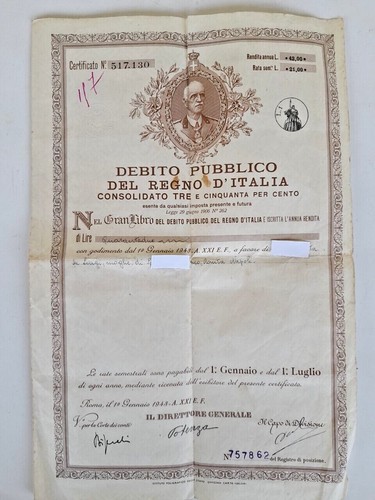 Certificato N° 517.130
Rendita annua L. 42,00
Rata sem.le L. 21,00
117
DEBITO PUBBLICO
DEL REGNO D'ITALIA
CONSOLIDATO TRE E CINQUANTA PER CENTO
esente da qualsiasi imposta presente e futura
Legge 29 giugno 1906 N° 262
NEL Gran Libro DEL DEBITO PUBBLICO DEL REGNO D'ITALIA È ISCRITTA L'ANNUA RENDITA
DI LIRE
con godimento dal 1° Gennaio 1943-A. XXI E. F. a favore di
moglie di
Le rate semestrali sono pagabili dal 1° Gennaio e dal 1° Luglio
di ogni anno, mediante ricevuta dell'esibitore del presente certificato.
Roma, il 1° Gennaio 1943-A. XXI E. F.
V° per la Corte dei conti
IL DIRETTORE GENERALE
Il Capo di Divisione
Potenza
N° 757862
del Registro di posizione.